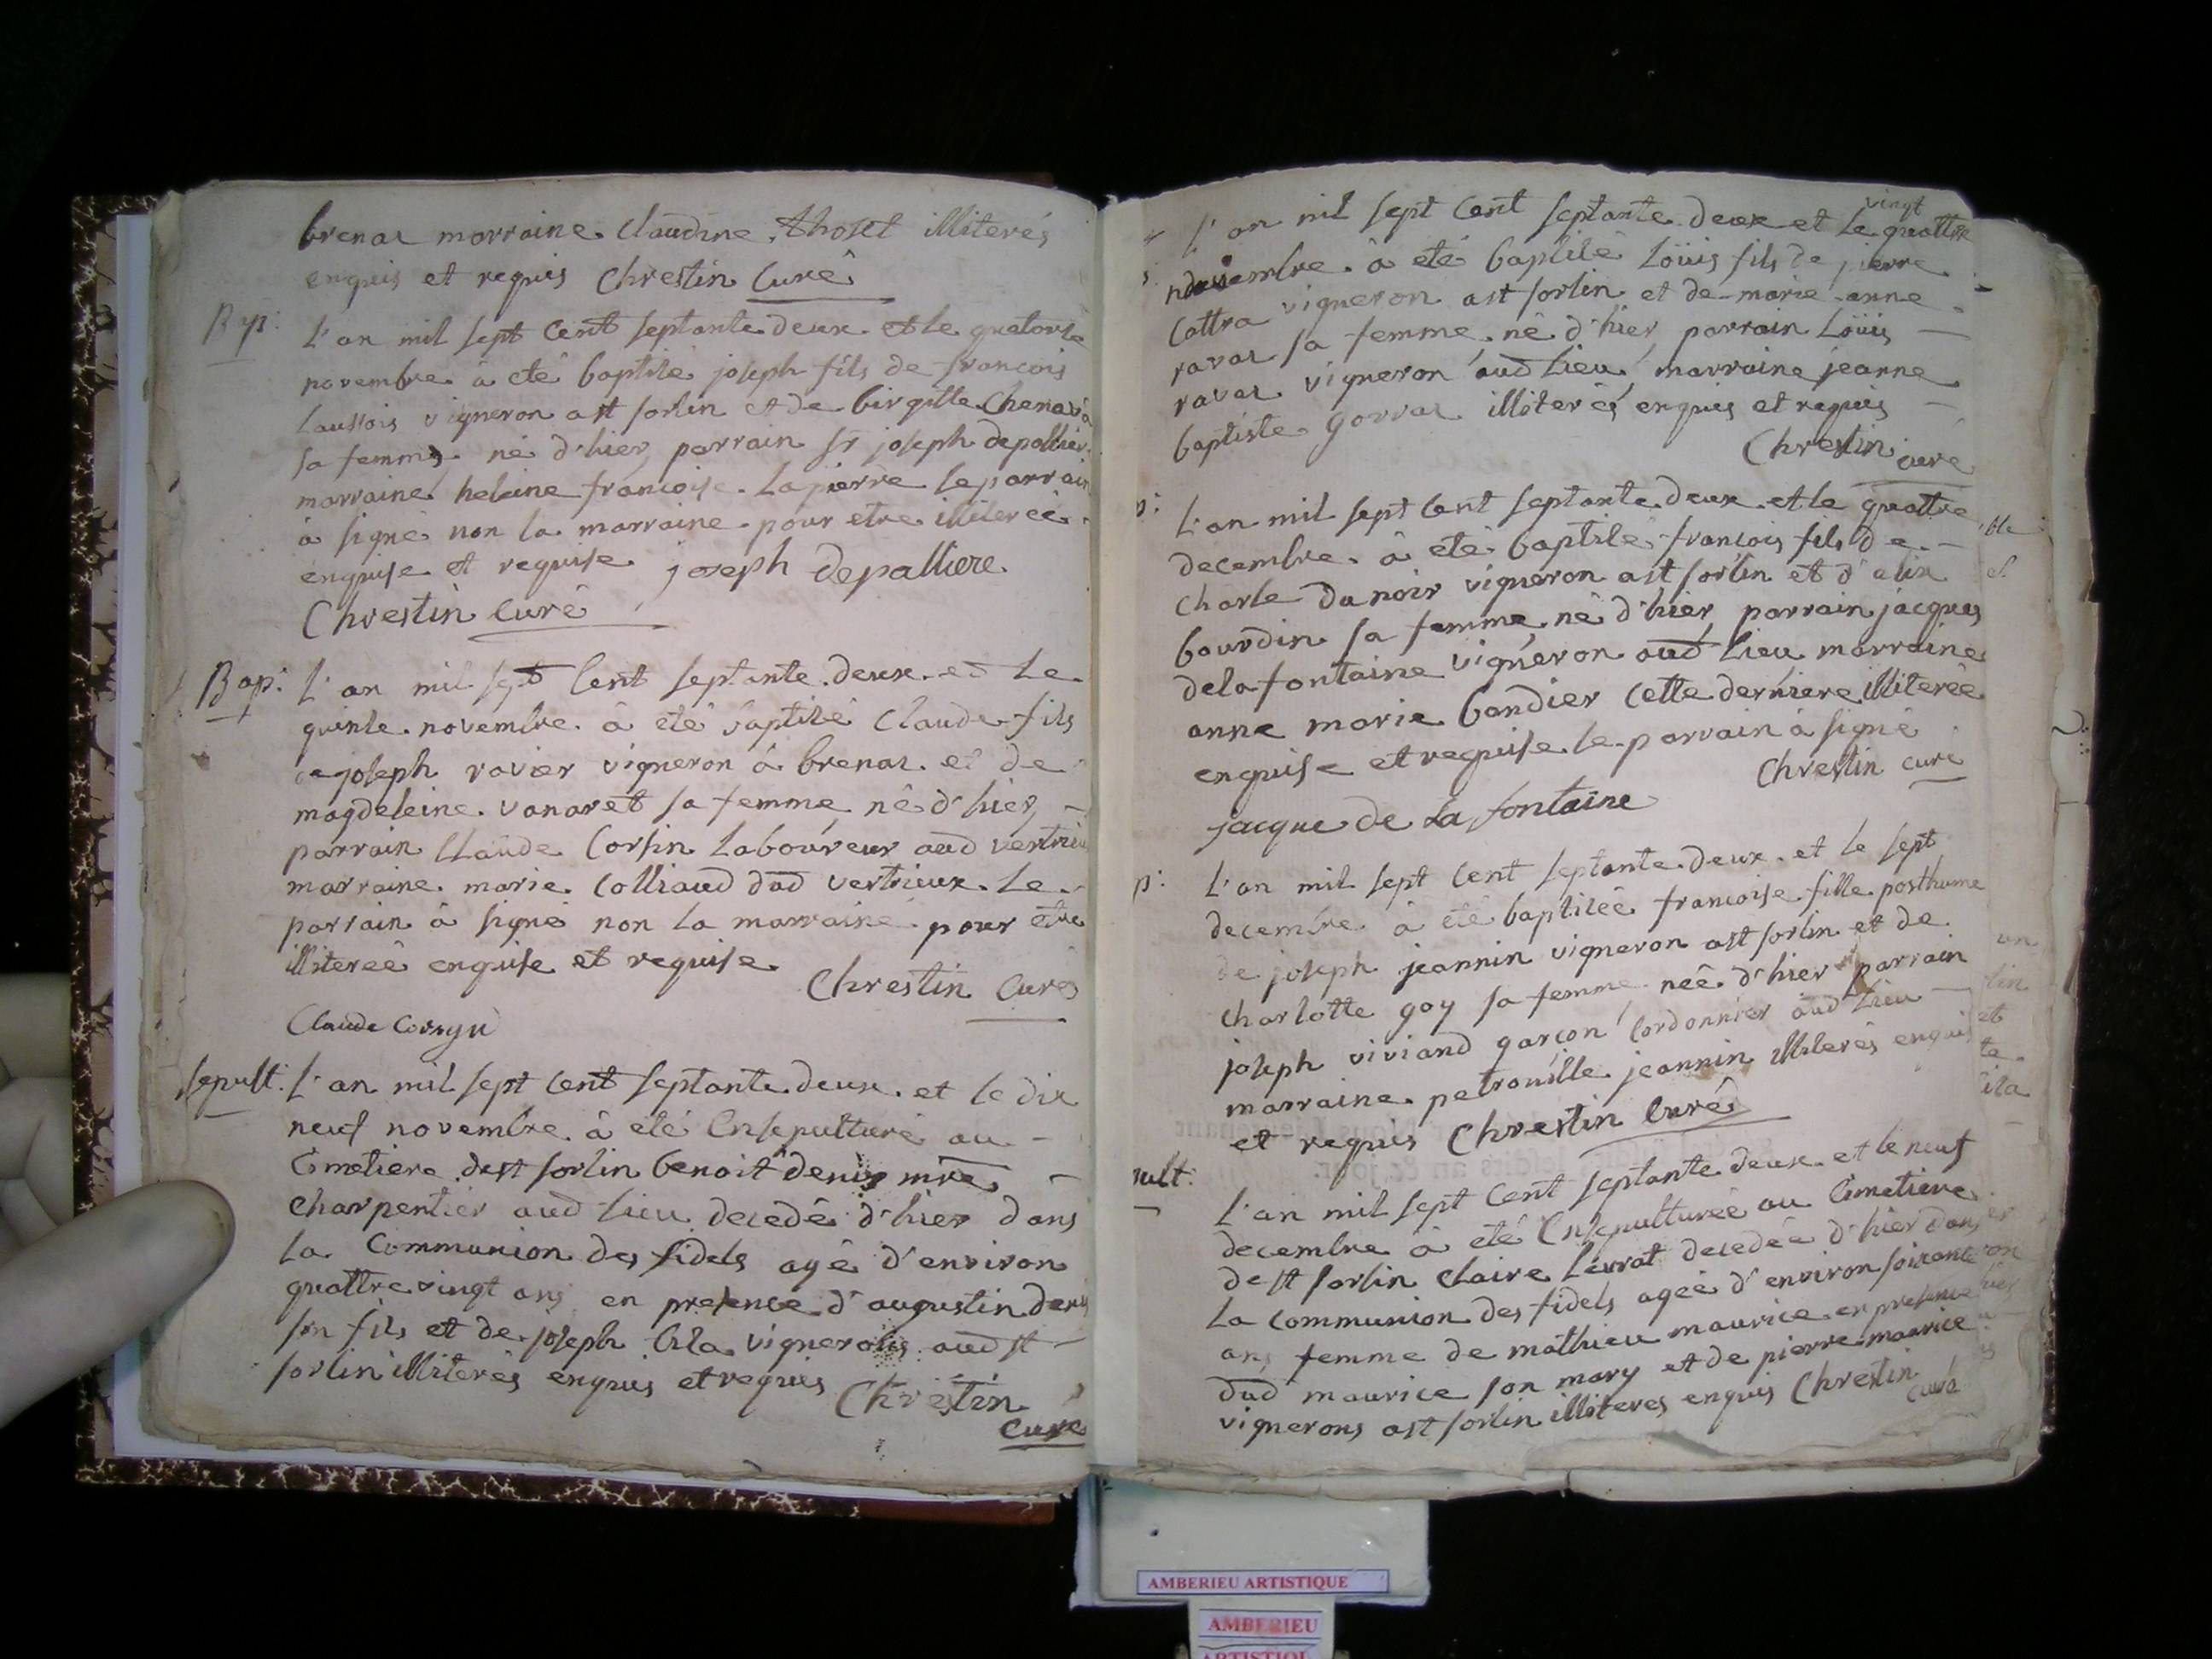 brenaz marraine Claudine thoset illiterés
enquis et requis Chrestin Curé
Bap:
L'an mil sept Cent septante deux et le quatorze
novembre à eté baptisé joseph fils de francois
laussois vigneron a st sorlin et de birgitte Chenava
sa femme né d'hier, parrain sr joseph depallier
marraine heleine francoise Lapierre le parrain
à signé non la marraine pour etre illiterée
enquise et requise joseph Depalliere
Chrestin Curé
Bap:
L'an mil sept Cent septante deux et Le
quinze novembre à eté baptisé Claude fils
de joseph ravier vigneron à brenaz et de
magdeleine vanaret sa femme, né d'hier,
parrain Claude Corsin Laboureur aud vertrieu
marraine marie Colliaud dud vertrieux Le
parrain à signé non La marraine pour etre
illiterée enquise et requise
Chrestin Curé
Claude Corsyn
sepult: L'an mil sept Cent septante deux et le dix
neuf novembre à eté Ensepulturé au
Cimetiere de st sorlin benoit denis mre
charpentier aud Lieu decedé d'hier dans
la Communion des fidels agé d'environ
quattre vingt ans en presence d'augustin denis
son fils et de joseph vignerons aud st
sorlin illiterés enquis et requis Chrestin
Curé
L'an mil sept Cent septante deux et Le vingt quattre
novembre à eté baptisé Loüis fils de pierre
Cottra vigneron a st sorlin et de marie anne
ravaz sa femme, né d'hier, parrain Loüis
ravaz vigneron aud Lieu, marraine jeanne
baptiste gorraz illiterés enquis et requis
Chrestin curé
p:
L'an mil sept Cent septante deux et le quattre
decembre à eté baptisé francois fils de
Charle Dunoir vigneron a st sorlin et d'alix
bourdin sa femme, né d'hier, parrain jacques
delafontaine vigneron aud Lieu marraine
anne marie bandier cette derniere illiterée
enquise et requise le parrain à signé
Chrestin curé
jacque de La fontaine
p:
L'an mil sept Cent septante deux et le sept
decembre à eté baptisée francoise fille posthume
de joseph jeannin vigneron a st sorlin et de
Charlotte goy sa femme née d'hier parrain
joseph viviand garcon Cordonnier aud Lieu
marraine petronille jeannin illiterés enquis
et requis Chrestin Curé
pult:
L'an mil sept Cent septante deux et le neuf
decembre à eté Ensepulturée au Cimetiere
de st sorlin Claire Levrat decedée d'hier dans
La communion des fidels agée d'environ soixante
ans femme de mathieu maurice en presence
dud maurice son mary et de pierre maurice
vignerons a st sorlin illiteres enquis Chrestin
curé
AMBERIEU ARTISTIQUE
AMBERIEU
ARTISTIQUE